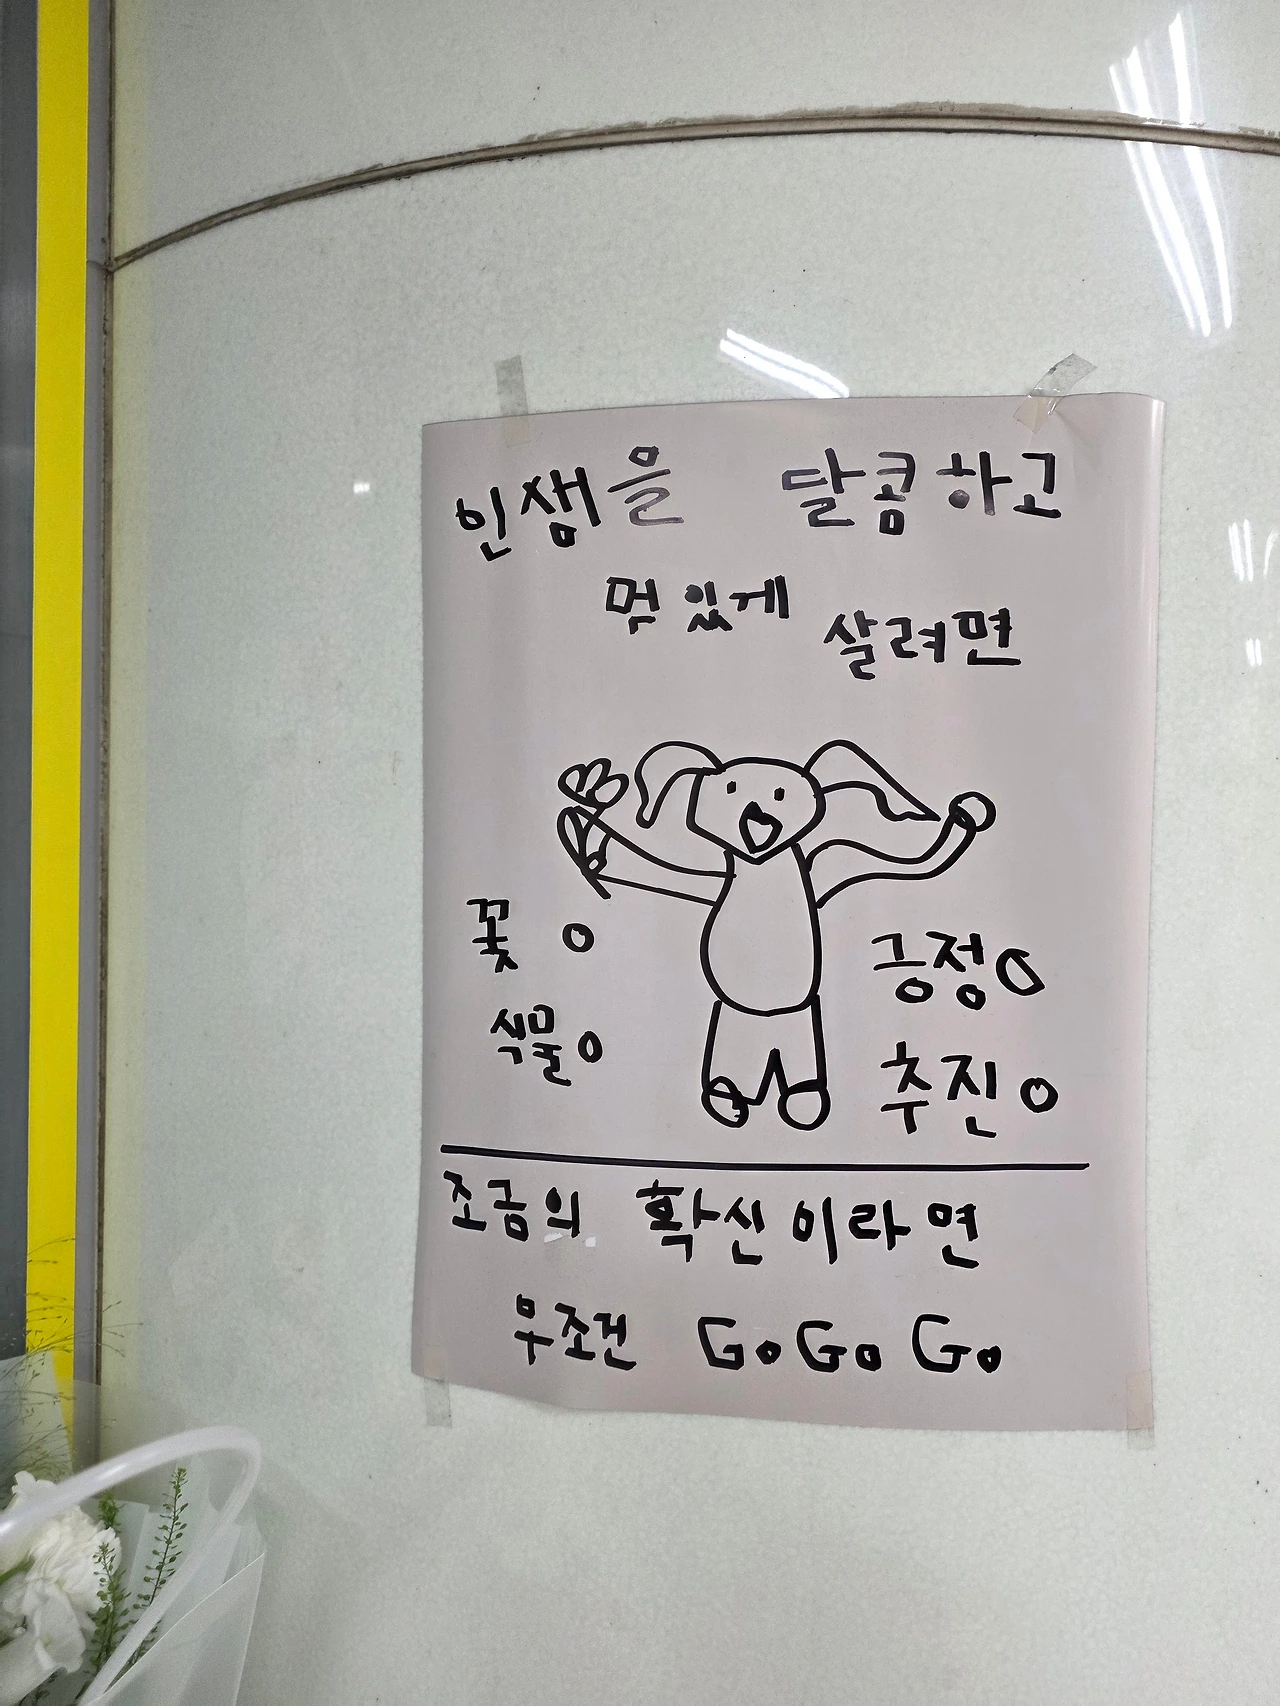 인생을 달콤하고
멋있게 살려면
꽃 o
식물o
긍정o
추진o
조금의 확신이라면
무조건 GoGoGo